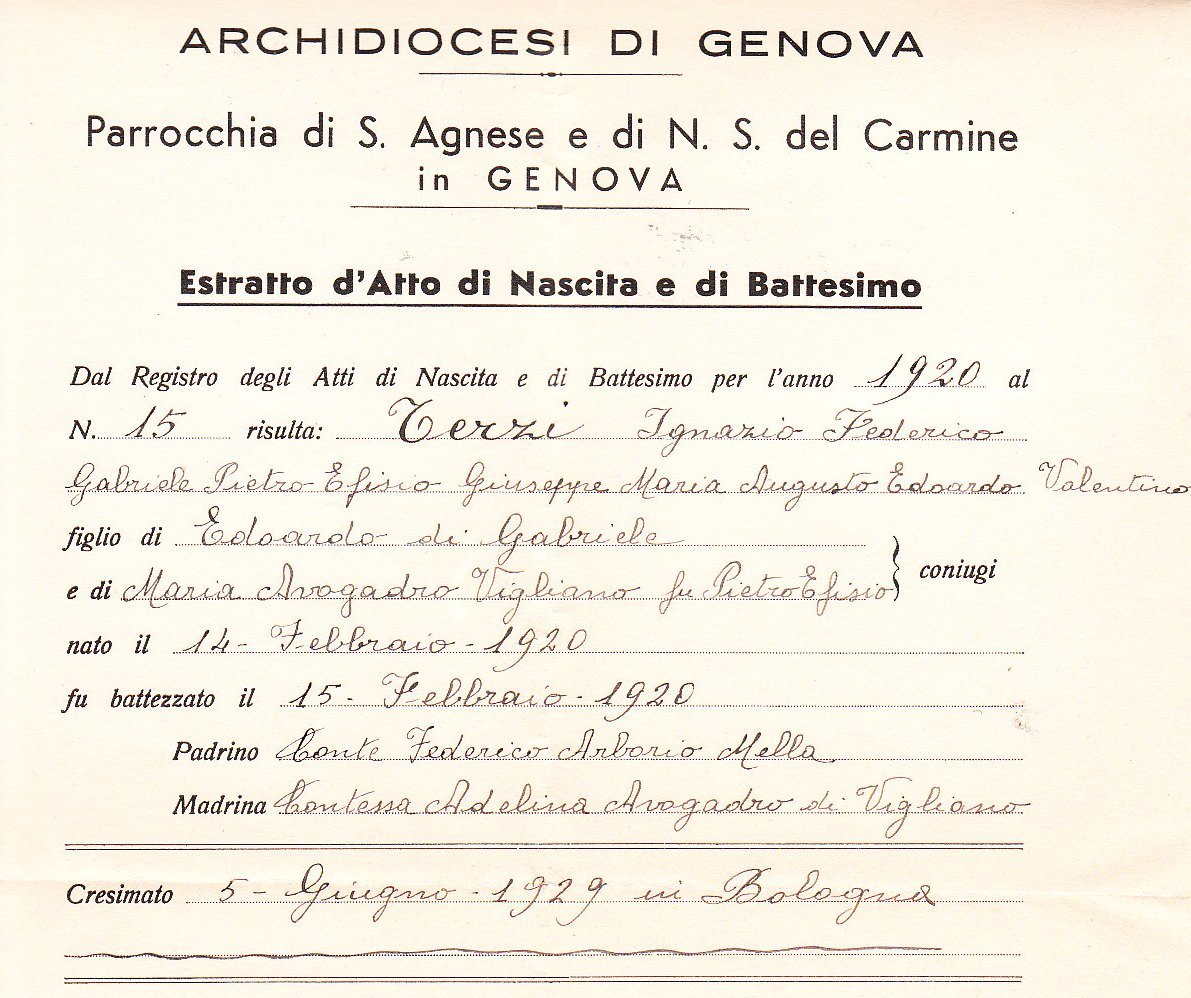 ARCHIDIOCESI DI GENOVA
Parrocchia di S. Agnese e di N. S. del Carmine
in GENOVA
Estratto d'Atto di Nascita e di Battesimo
Dal Registro degli Atti di Nascita e di Battesimo per l'anno 1920 al
N. 15 risulta: Terzi Ignazio Federico
Gabriele Pietro Efisio Giuseppe Maria Augusto Edoardo Valentino
figlio di Edoardo di Gabriele
e di Maria Avogadro Vigliano fu Pietro Efisio } coniugi
nato il 14 - Febbraio - 1920
fu battezzato il 15 - Febbraio - 1920
Padrino Conte Federico Arborio Mella
Madrina Contessa Adelina Avogadro di Vigliano
Cresimato 5 - Giugno - 1929 in Bologna